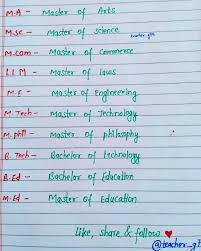 M.A - Master of Arts
M.Sc - Master of Science
M.com - Master of Commerce
L.L.M - Master of laws
M.E - Master of Engineering
M.Tech - Master of Technology
M.phil - Master of philosophy
B.Tech - Bachelor of technology
B.Ed - Bachelor of Education
M.Ed - Master of Education
like, share & follow